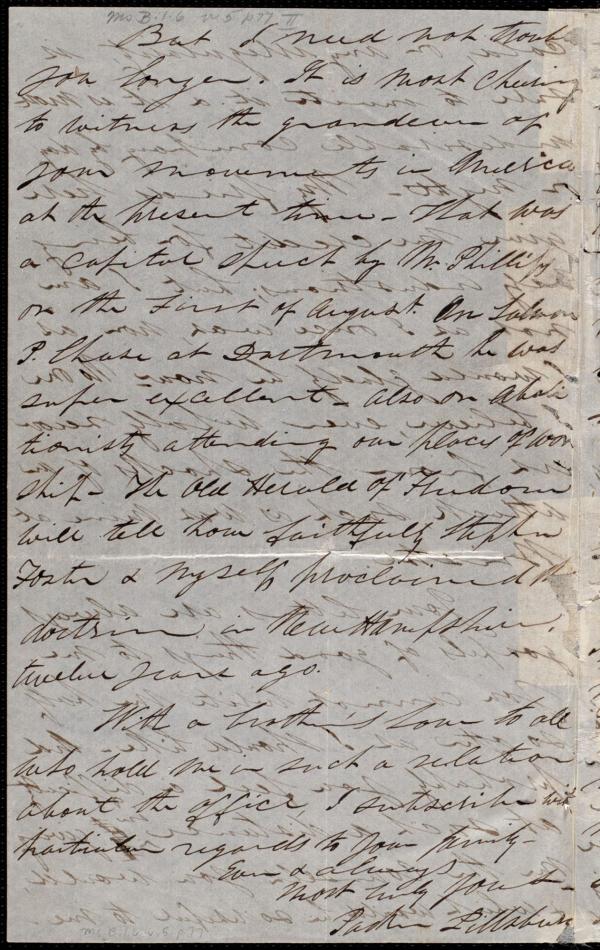 Ms. B.1.6 v.5 p77 II
But I need not troub
you longer. It is most cheering
to witness the grandeur of
your movements in America
at the present time - That was
a capital speech by Mr. Phillips
on the First of August. On Salmon
P. Chase at Dartmouth he was
super excellent - also on Aboli
tionists attending our places of wor
ship - The Old Herald of Freedom
will tell how faithfully Stephen
Foster & myself proclaimed th
doctrine in New Hampshire,
twelve years ago.
With a brother's love to all
who hold me in such a relation
about the office I subscribe with
particular regards to your family -
Ever & always
most truly yours -
Parker Pillsbury
Ms. B.1.6 v.5 p77